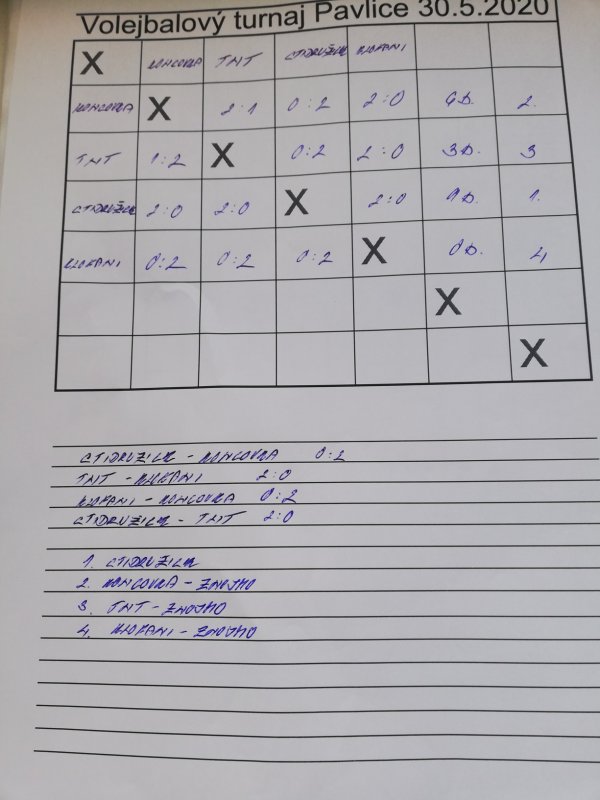 Volejbalový turnaj Pavlice 30.5.2020
X KONCOVKA TNT CTIDRUŽICE KLOKANI
KONCOVKA X 2:1 0:2 2:0 6B. 2.
TNT 1:2 X 0:2 2:0 3B. 3
CTIDRUŽICE 2:0 2:0 X 2:0 9B. 1.
KLOKANI 0:2 0:2 0:2 X 0B. 4
X
X
CTIDRUŽICE - KONCOVKA 0:2
TNT - KLOKANI 2:0
KLOKANI - KONCOVKA 0:2
CTIDRUŽICE - TNT 2:0
1. CTIDRUŽICE
2. KONCOVKA - ZNOJMO
3. TNT - ZNOJMO
4. KLOKANI - ZNOJMO